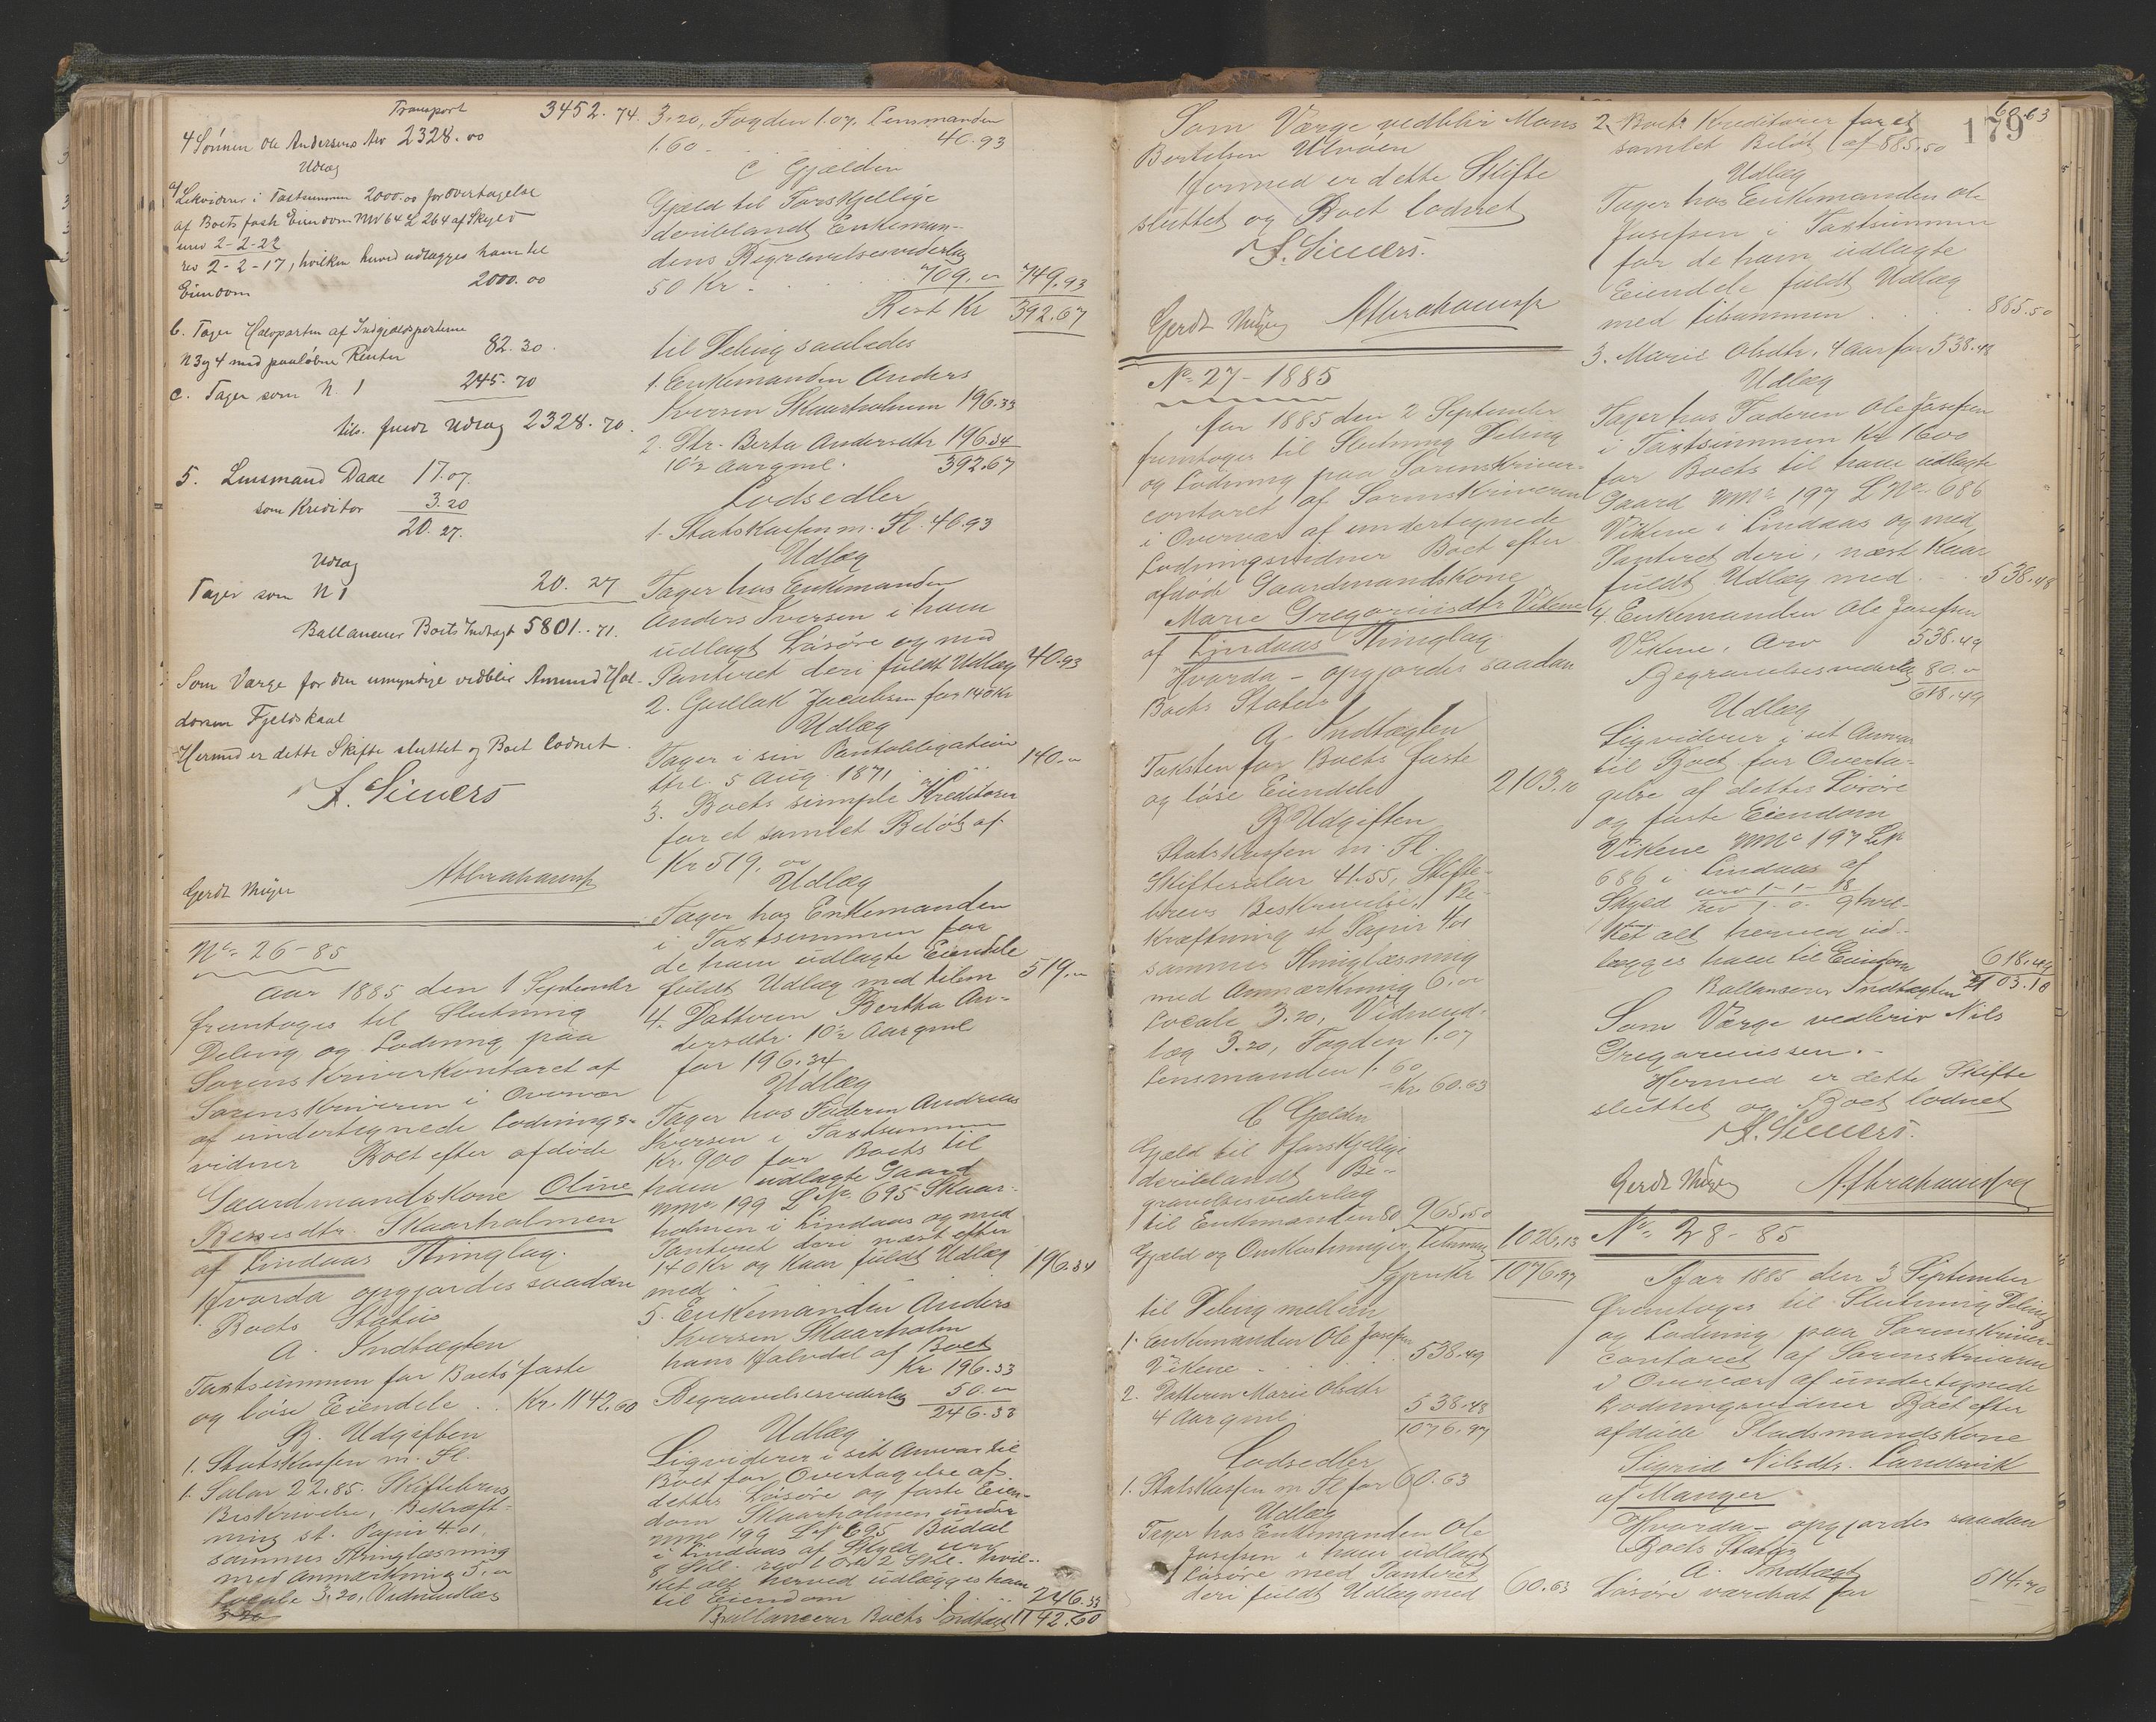 Transport 3452.74.
4 Sønnen Ole Andersens Arv 2328.00
Udlæg
a) Likviderer i Taxtsummen 2000.00 for Overtagelse
af Boets faste Eiendom MN 64 L 264 af Skyld
urev 2-2-22
rev 2-2-17, hvilken herved udlægges ham til
Eiendom 2000.00
b. Tager Halvparten af Indgjældsposterne
N 3 og 4 med paaløbne Renter 82.30.
c. Tager som N. 1 245.70
tils. fuldt Udlæg 2328.70.
5. Lensmand Daae 17.07.
som Kreditor 3.20
20.27.
Udlæg
Tager som N 1 20.27
Ballancerer Boets Indtægt 5801.71.
Som Værge for den umyndige vedblir Amund Hal-
dorsen Fjeldskaal
Hermed er dette Skifte sluttet og Boet loddet.
A. Siewers
Gerdt Meyer Abrahamsen
No 26-85
Aar 1885 den 1 September
fremtoges til Slutning
Deling og Lodning paa
Sorenskriverkontoret af
Sorenskriveren i Overvær
af undertegnede Lodnings-
vidner Boet efter afdøde
Gaardmandskone Oline
Bessesdtr. Skaarholmen
af Lindaas Thinglag.
Hvorda opgjordes saadan
Boets Status
A. Indtægten
Taxtsummen for Boets faste
og løse Eiendele .. Kr. 1142.60
B. Udgiften
1. Statskassen m. Fl.
1. Salar 22.85. Skiftebrevs
Beskrivelse, Bekræft-
ning st. Papir 4.01.
sammes Thinglæsning
med Anmærkning 5.00
Locale 3.20, Vidneudlæg
3.20
3.20, Fogden 1.07, Lensmanden
1.60 40.93
C Gjælden
Gjæld til Forskjellige
deriblandt Enkeman-
dens Begravelsesvederlag
50 Kr. 709.00 749.93
Rest Kr 392.67
til Deling saaledes
1. Enkemanden Anders
Iversen Skaarholmen 196.33
2. Dtr. Berta Andersdtr 196.34
10½ Aar gml. 392.67
Lodsedler
1. Statskassen m. Fl. 40.93
Udlæg
Tager hos Enkemanden
Anders Iversen i ham
udlagt Løsøre og med
Panteret deri fuldt Udlæg 40.93
2. Gullak Jacobsen for 140 Kr
Udlæg
Tager i sin Pantobligation
thl. 5 Aug. 1871 140.00
3. Boets simple Kreditorer
for et samlet Beløb af
Kr 519.00
Udlæg
Tager hos Enkemanden
i Taxtsummen for
de ham udlagte Eiendele
fuldt Udlæg med tilsm 519.00
4. Datteren Bertha An-
dersdtr. 10½ Aar gml
for 196.34
Udlæg
Tager hos Faderen Andreas
Iversen i Taxtsummen
Kr. 900 for Boets til
ham udlagte Gaard
MNo. 199 L No. 695 Skaar-
holmen i Lindaas og med
Panteret deri næst efter
140 Kr og Kaar fuldt Udlæg
med 196.34
5. Enkemanden Anders
Iversen Skaarholm
hans Halvdel af Boet
Kr 196.33
Begravelsesvederlag 50.00
246.33
Udlæg
Liqviderer i sit Ansvar til
Boet for Overtagelse af
dettes Løsøre og faste Eien-
dom Skaarholmen under
MNo 199 LNo 695 Budal
i Lindaas af Skyld urv
8 Skl. rev 1 Ort 2 Skl. hvil-
ket alt herved udlægges ham
til Eiendom 246.33
Ballancerer Boets Indtægt 1142.60
Som Værge vedblir Mons
Bertelsen Ulvøen
Hermed er dette Skifte
sluttet og Boet loddet
A. Siewers.
Gerdt Meyer Abrahamsen
No 27-1885
Aar 1885 den 2 September
fremtoges til Slutning Deling
og Lodning paa Sorenskriver-
contoret af Sorenskriveren
i Overvær af undertegnede
Lodningsvidner Boet efter
afdøde Gaardmandskone
Marie Gregoriusdtr Vikene
af Lindaas Thinglag
Hvorda opgjordes saadan
Boets Status
A Indtægten
Taksten for Boets faste
og løse Eiendele 2103.10
B Udgiften
Statskassen m. Fl.
Skiftesalar 41.55, Skifte-
brevs Beskrivelse, Be-
kræftning st Papir 4.01
sammes Thinglæsning
med Anmærkning 6.00
Locale 3.20, Vidneud-
læg 3.20, Fogden 1.07
Lensmanden 1.60
Kr. 60.63
C Gjælden
Gjæld til Forskjellige
deriblandt Be-
gravelsesvederlag
til Enkemanden 80 965.50
Gjæld og Omkostninger tilsammen 1026.13
Igjen Kr 1076.97
til Deling mellem
1. Enkemanden Ole Josefsen
Vikene 538.49
2. Datteren Marie Olsdtr
4 Aar gml. 538.48
1076.97
Lodsedler
1. Statskassen m Fl for 60.63
Udlæg
Tager hos Enkemanden Ole
Josefsen i ham udlagt
Løsøre med Panteret
deri fuldt Udlæg med 60.63
60.63
179
2. Boets Kreditorer for et
samlet Beløb af 885.50
Udlæg
Tager hos Enkemanden Ole
Josefsen i Taxtsummen
for de ham udlagte
Eiendele fuldt Udlæg
med tilsammen 885.50
3. Marie Olsdtr, 4 Aar for 538.48
Udlæg
Tager hos Faderen Ole Josefsen
i Taxtsummen Kr 1600
for Boets til ham udlagte
Gaard MNo 197 L No. 686
Vikene i Lindaas og med
Panteret deri, næst Kaar
fuldt Udlæg med 538.48
4. Enkemanden Ole Josefsen
Vikene, Arv 538.49
Begravelsesvederlag 80.00
618.49
Udlæg
Liqviderer i set Ansvar
til Boet for Overta-
gelse af dettes Løsøre
og faste Eiendom
Vikene MNo 197 LNo
686 i Lindaas af
Skyld urv 1-1-18
rev 1.0.9 hvil-
ket alt herved ud-
lægges ham til Eiendom 618.49
Ballancerer Indtægten 2103.10
Som Værge vedbliver Nils
Gregoriussen.-
Hermed er dette Skifte
sluttet og Boet loddet
A. Siewers.
Gerdt Meyer Abrahamsen
No. 28-85
Aar 1885 den 3 September
fremtoges til Slutning Deling
og Lodning paa Sorenskriver-
contoret af Sorenskriveren
i Overvær af undertegnede
Lodningsvidner Boet efter
afdøde Pladsmandskone
Sigrid Nilsdtr. Landsvik
af Manger
Hvorda opgjordes saadan
Boets Status
A. Indtægt
Løsøre værdsat for 614.70